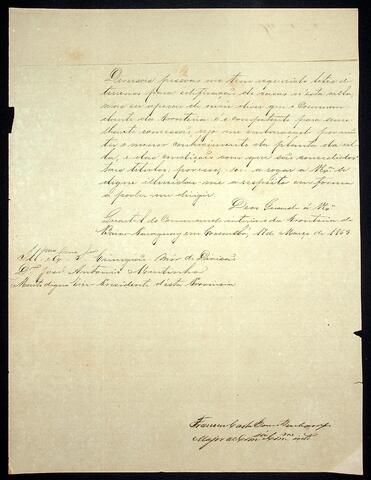 Diversas pessoas me tem requerido lotes de
terrenos para edificação de casas n'esta villa,
mas eu apesar de me dizer que o Comman
dante da Fronteira é o competente para seme
lhante concessão, vejo me embaraçado por não
ter o menor conhecimento da planta da vil
la, e das condições com que são concedidos
taes titulos, por isso, vou a rogar a V. Exª se
digne illucidar me a respeito em forma
a poder me dirigir.
Deos Guarde a V. Exª
Quartel do Commando interino da Fronteira do
Baixo Paraguay em Corumbá, 17 de Março de 1863
Illmo Exmo Snr
Dr José Antonio
Presidente d'esta Provincia
Francisco
Major